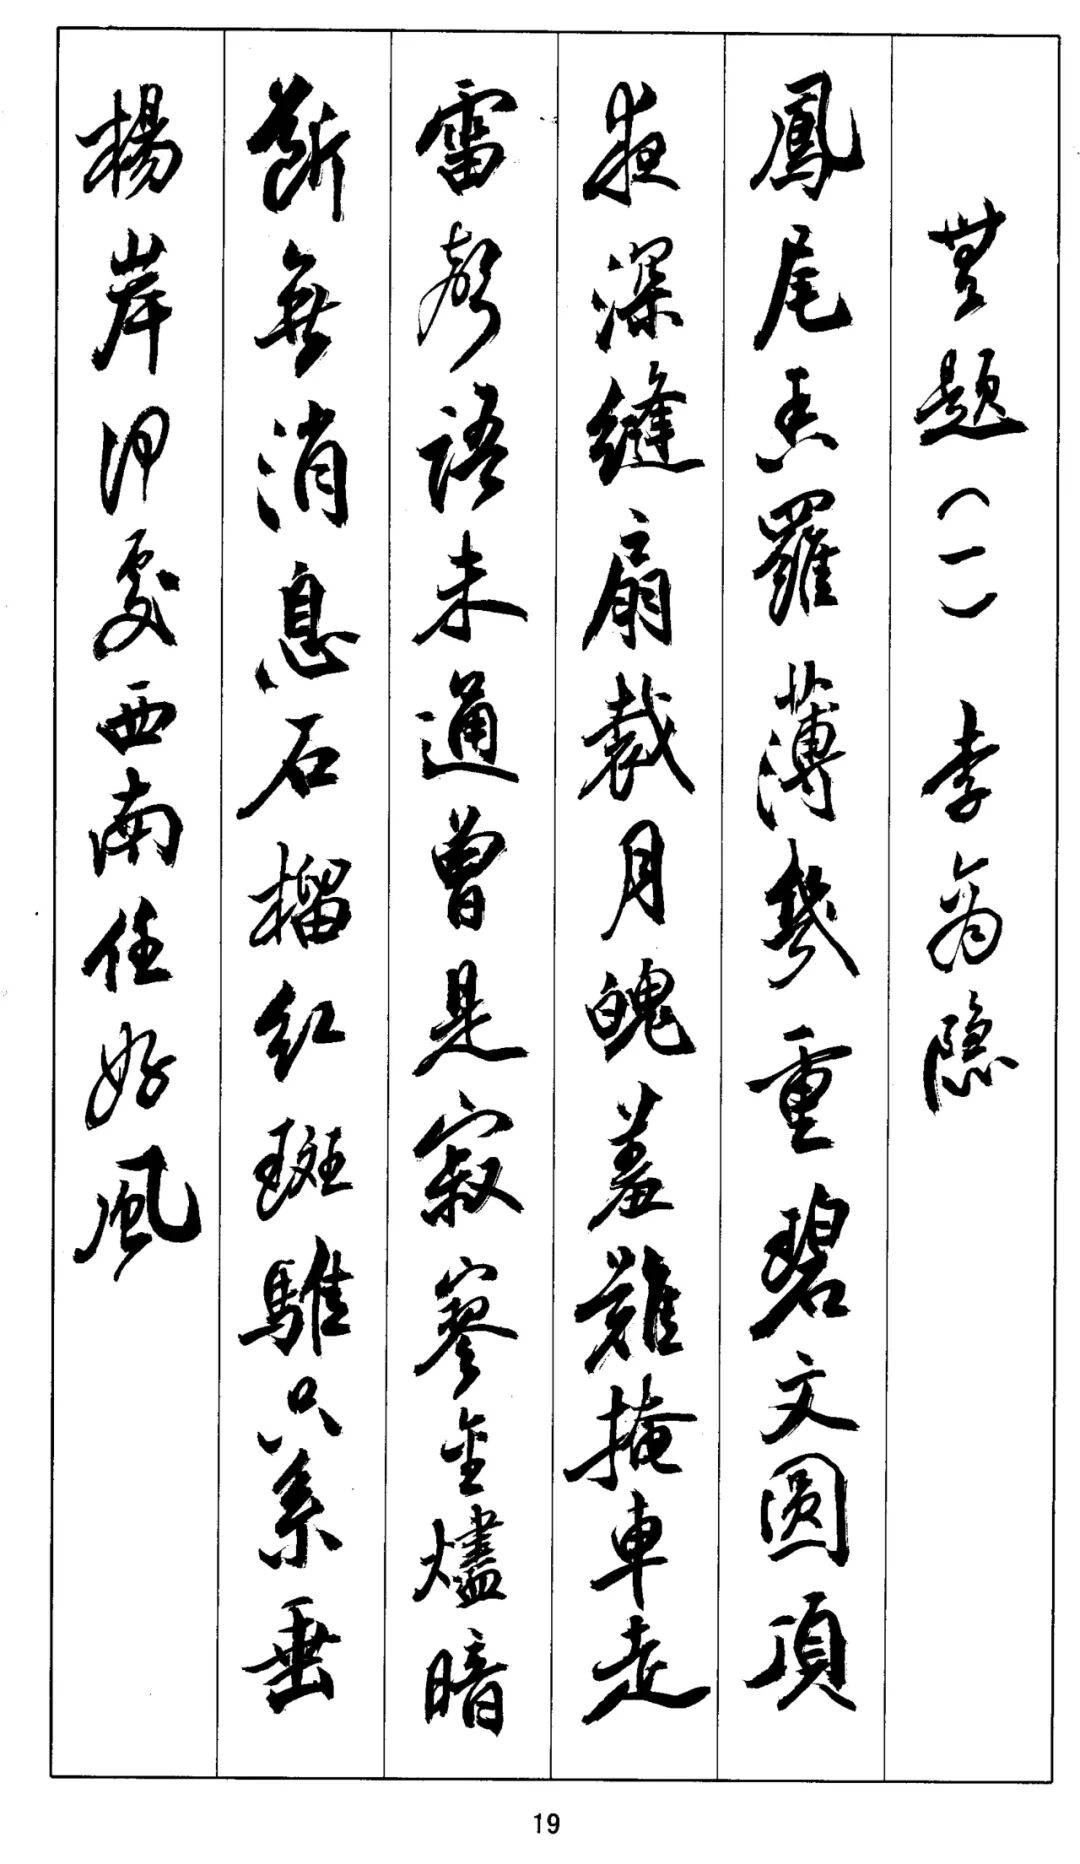 無題（一）李商隐
鳳尾香羅薄幾重碧文圓頂
夜深縫扇裁月魄羞難掩車走
雷聲語未通曾是寂寥金燼暗
斷無消息石榴红斑騅只系垂
楊岸何處西南任好風
19